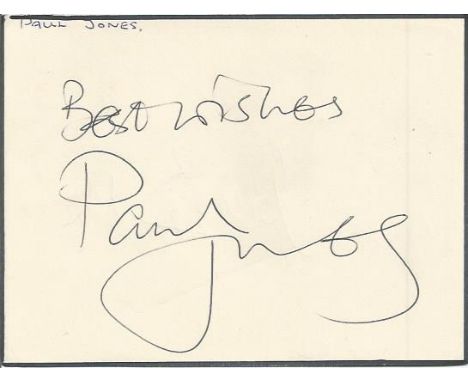 PAUL JONES.
Best wishes
Paul Jones